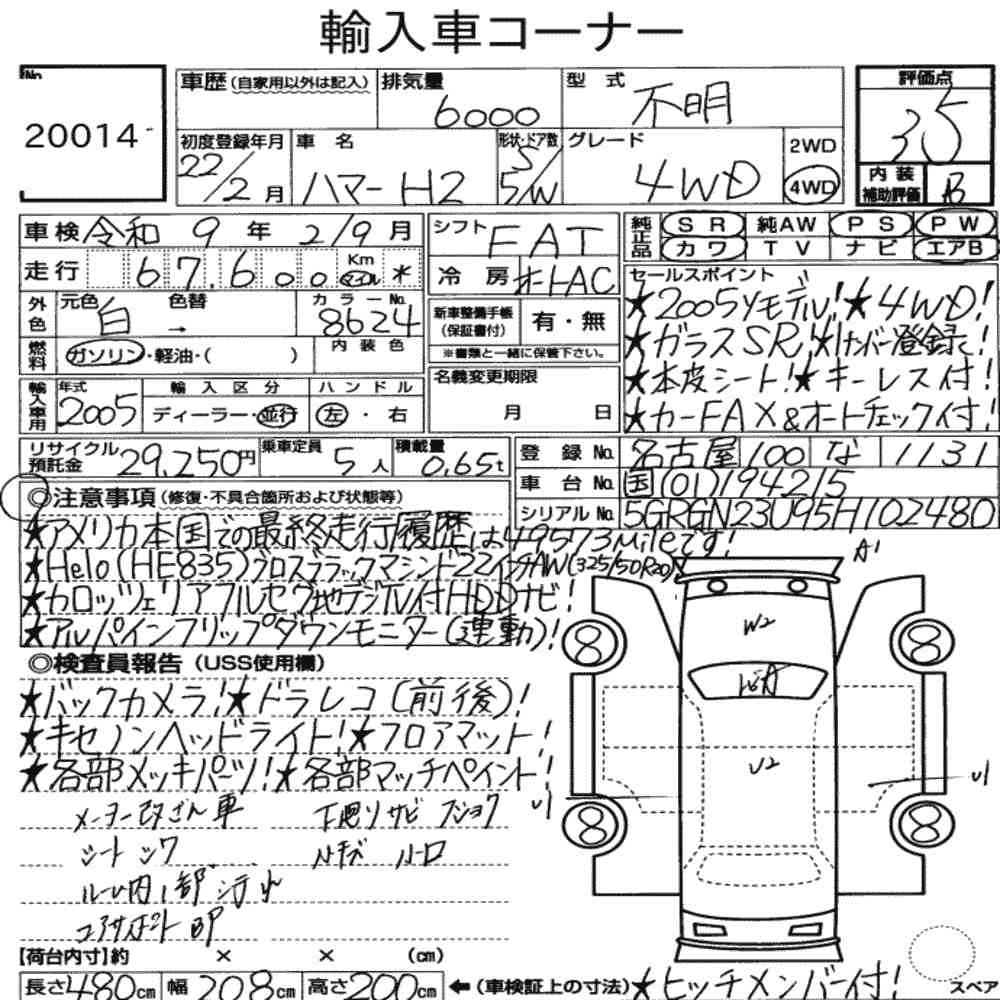 輸入車コーナー
No.
20014
車歴(自家用以外は記入)
排気量
6000
型 式
不明
評価点
3.5
初度登録年月
22/2月
車 名
ハマー H2
形状・ドア数
5/5W
グレード
4WD
2WD
4WD
内装補助評価
B
車検 令和 9 年 2/9 月
走行 67,600 Km マイル *
外色 元色 白 → 色替
カラーNo. 8624
燃料 ガソリン・軽油・( )
内装色
シフト FAT
冷房 オートAC
新車整備手帳(保証書付) 有・無
※書類と一緒に保管下さい。
純正品 SR 純AW PS PW
カワ TV ナビ エアB
セールスポイント
★2005yモデル!★4WD!
★ガラスSR!★1ナンバー登録!
★本皮シート!★キーレス付!
★カーFAX&オートチェック付!
輸入車用 年式 2005
輸入区分 ディーラー・並行
ハンドル 左・右
名義変更期限
月 日
リサイクル預託金 29,250円
乗車定員 5人
積載量 0.65t
登録No. 名古屋 100 な 1131
車台No. 国(01)194215
シリアルNo. 5GRGN23U95H102480
◎注意事項(修復・不具合箇所および状態等)
★アメリカ本国での最終走行履歴は49573Mileです!
★Helo(HE835)グロスブラックマシンド22インチAW(325/50R20)
★カロッツェリアフルセグ地デジTV付HDDナビ!
★アルパインフリップダウンモニター(連動)!
◎検査員報告(USS使用欄)
★バックカメラ!★ドラレコ(前後)!
★キセノンヘッドライト!★フロアマット!
★各部メッキパーツ!★各部マッチペイント!
メーター改ざん車
下廻りサビ フショク
シート シワ
ハンドル内1部汚れ
コアサポートBP
A1
W2
U2
U1
U1
【荷台内寸】約 × × (cm)
長さ480cm 幅208cm 高さ200cm ←(車検証上の寸法)★ヒッチメンバー付!
スペア